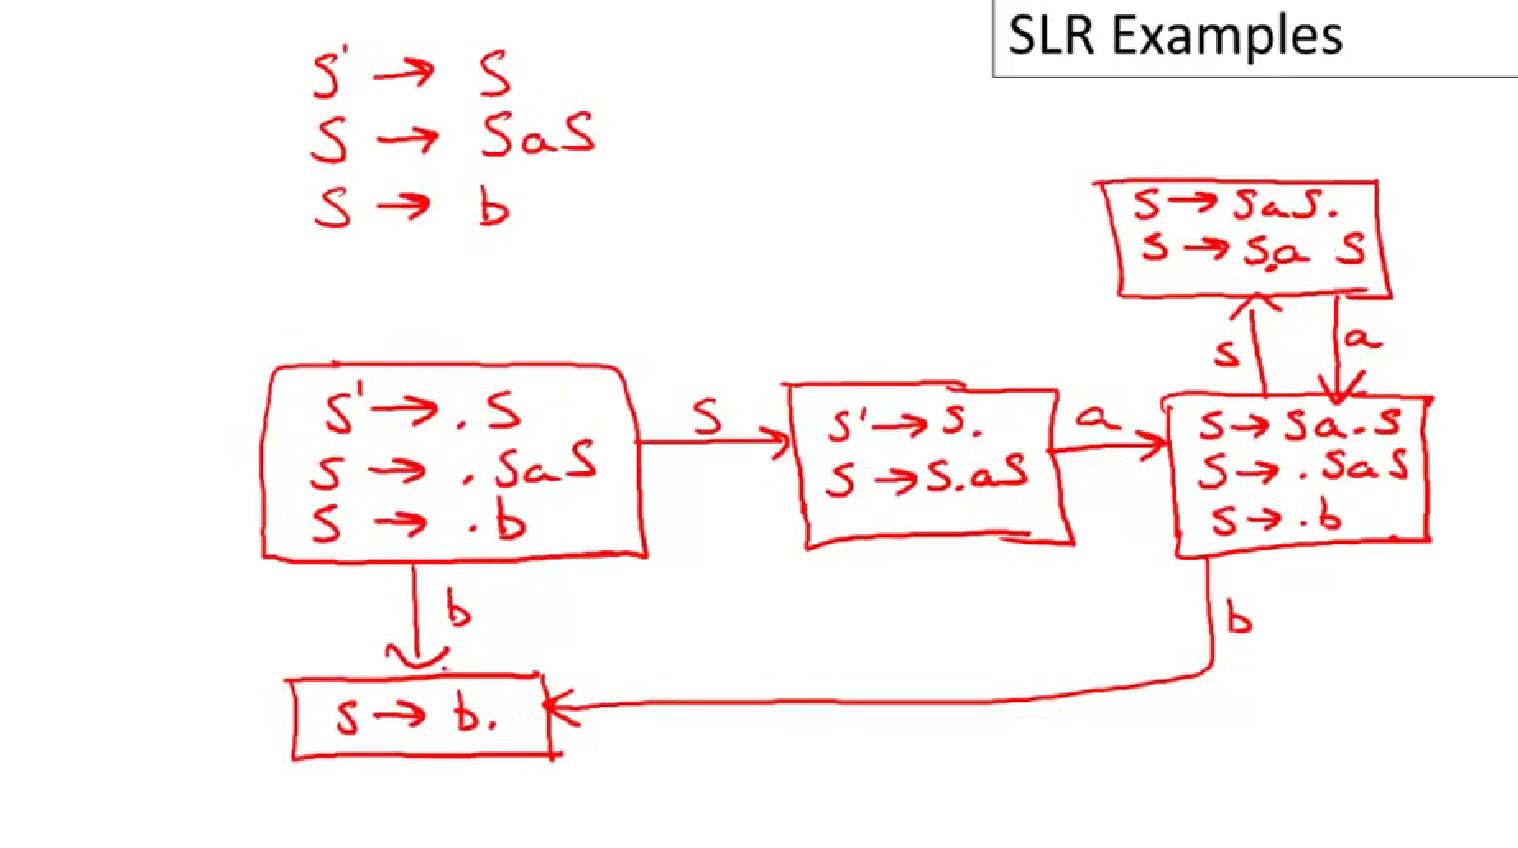 SLR Examples
S' → S
S → SaS
S → b
S → SaS.
S → S.a S
S
a
S' → .S
S → .SaS
S → .b
S
S' → S.
S → S.aS
a
S → Sa.S
S → .SaS
S → .b
b
b
S → b.